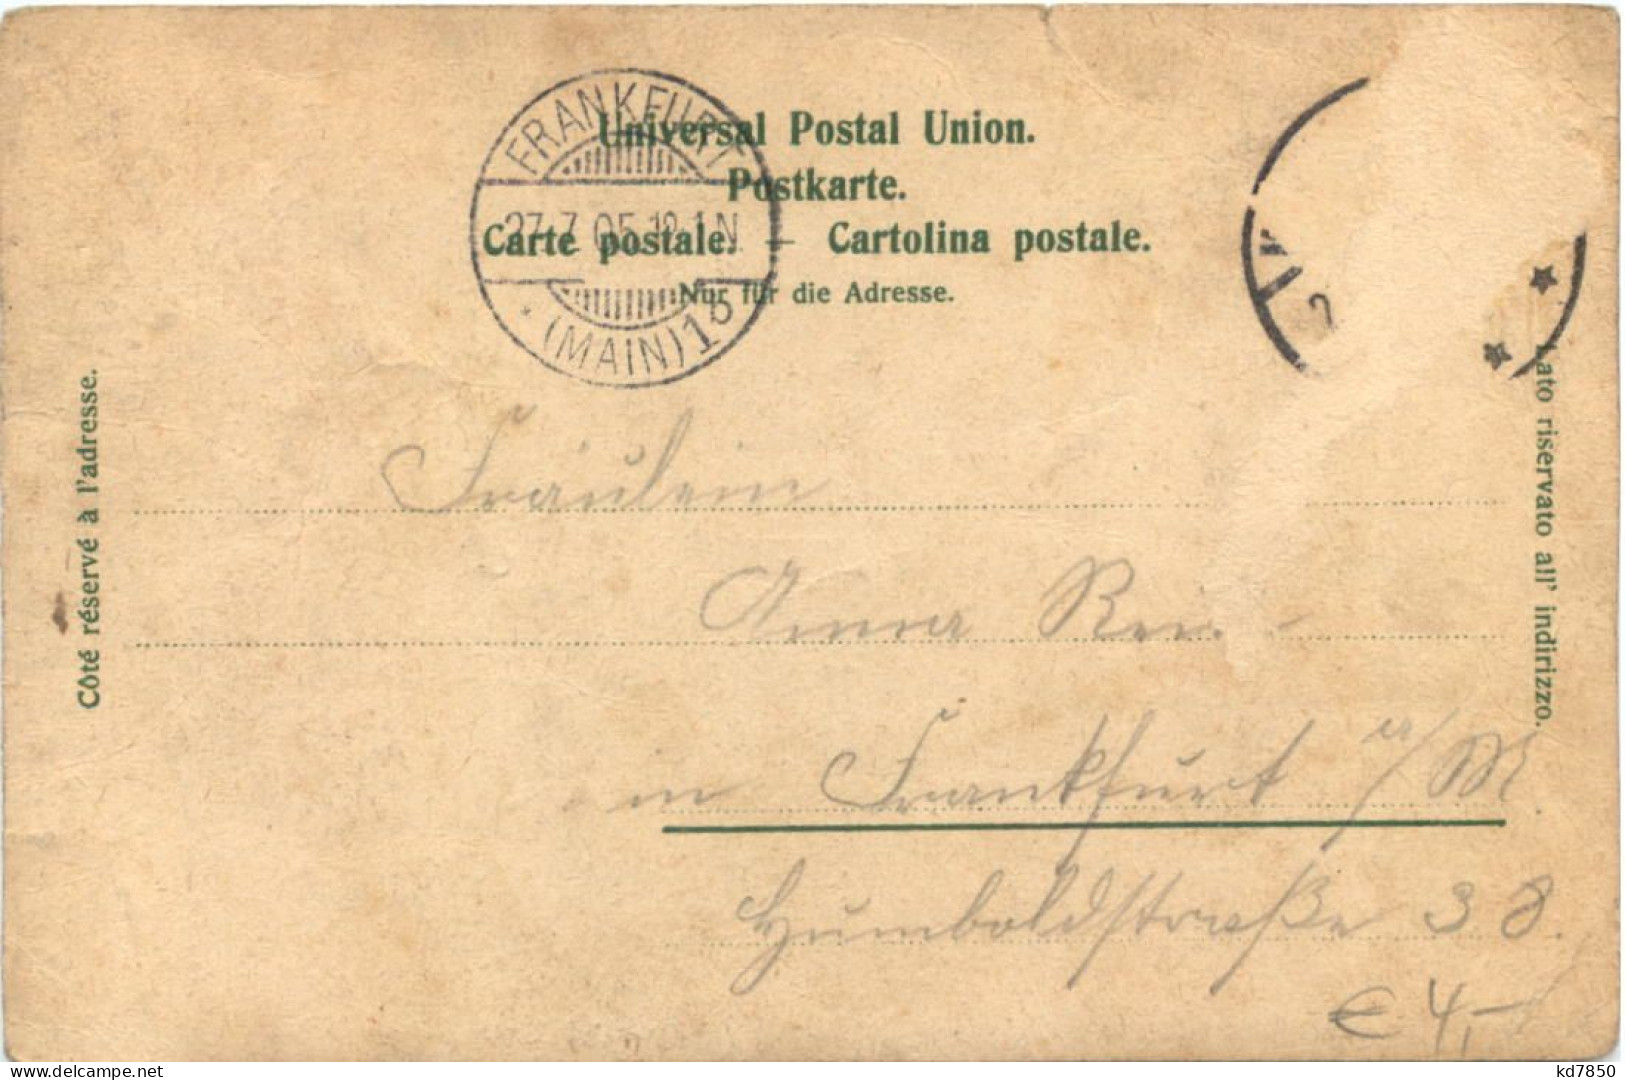 Universal Postal Union.
Postkarte.
Carte postale. — Cartolina postale.
Nur für die Adresse.
FRANKFURT
27.7.05.
(MAIN) 1
Côté réservé à l'adresse.
Lato riservato all' indirizzo.
Fräulein
Anna
in Frankfurt a/M.
Humboldtstraße 38.
€ 4,-
delcampe.net
kd7850